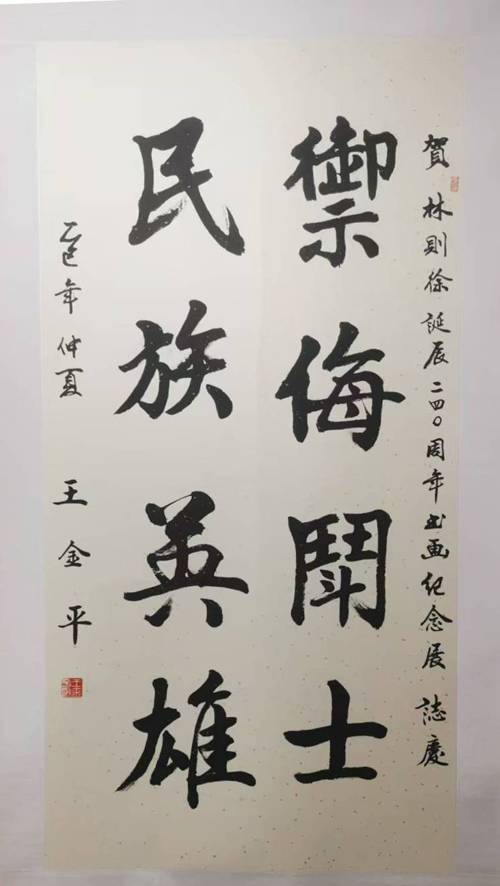 賀 林則徐誕辰二四〇周年书画纪念展 誌慶
禦侮鬪士
民族英雄
乙巳年仲夏 王金平